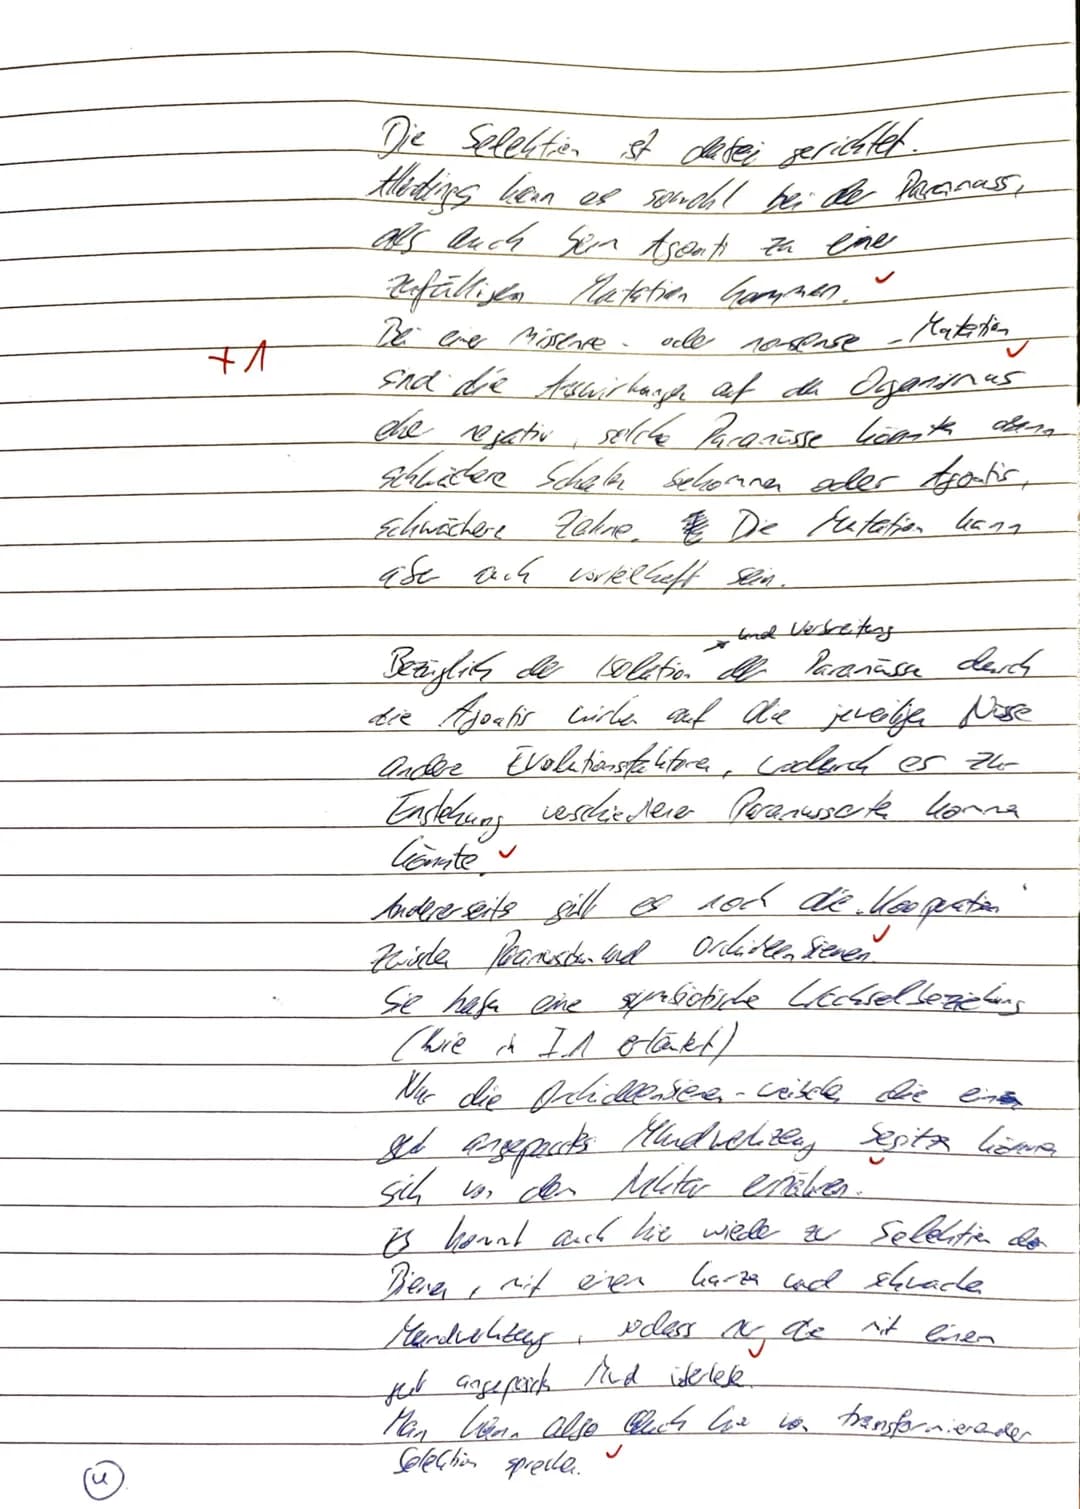 Die Selektion ist dabei gerichtet.
Allerdings kann es sowohl bei der Paranuss,
als auch beim Agouti zu einer
zufälligen Mutation kommen.
Bei einer Missense- oder nonsense-Mutation
+1
sind die Auswirkungen auf den Organismus
eher negativ, solche Paranüsse könnten dann
schwächere Schalen bekommen oder Agoutis,
schwächere Zähne. Die Mutation kann
aber auch vorteilhaft sein.
und Verbreitung
Bezüglich der Isolation der Paranüsse durch
die Agoutis wirken auf die jeweiligen Nüsse
andere Evolutionsfaktoren, wodurch es zur
Enstehung verschiedener Paranussarten kommen
könnte.
Andererseits gilt es noch die Kooperation
zwischen Paranussbaum und Orchideenbienen.
Sie haben eine symbiotische Wechselbeziehung
(wie in I.1 erläutert)
Nur die Orchideenbienen-weibchen die ein
gut angepasstes Mundwerkzeug besitzen können
sich von dem Nektar ernähren.
Es kommt auch hier wieder zu Selektion der
Bienen, mit einem kurzen und schwachen
Mundwerkzeug, sodass nur die mit einem
gut angepassten Mund überleben.
Man kann also auch hier von transformierender
Selektion sprechen.
4